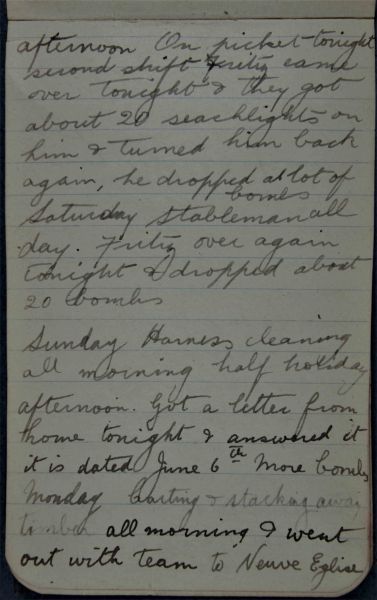 afternoon On picket tonight
second shift Fritz came
over tonight & they got
about 20 seachlights on
him & turned him back
again, he dropped a lot of
bombs
Saturday Stableman all
day. Fritz over again
tonight & dropped about
20 bombs
Sunday Harness cleaning
all morning half holiday
afternoon. Got a letter from
home tonight & answered it
it is dated June 6th More bombs
Monday carting & stacking away
timber all morning & went
out with team to Neuve Eglise